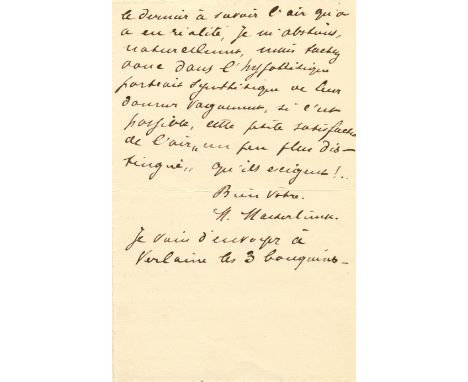 le dernier à savoir l'air qu'on
a en réalité, Je m'abstiens,
naturellement, mais tachez
donc dans l'hypothétique
portrait synthétique de leur
donner vaguement, si c'est
possible, cette petite satisfaction
de l'air „un peu plus dis-
tingué„ qu'ils exigent!..
Bien Vôtre.
M. Maeterlinck.
Je viens d'envoyer à
Verlaine les 3 bouquins—